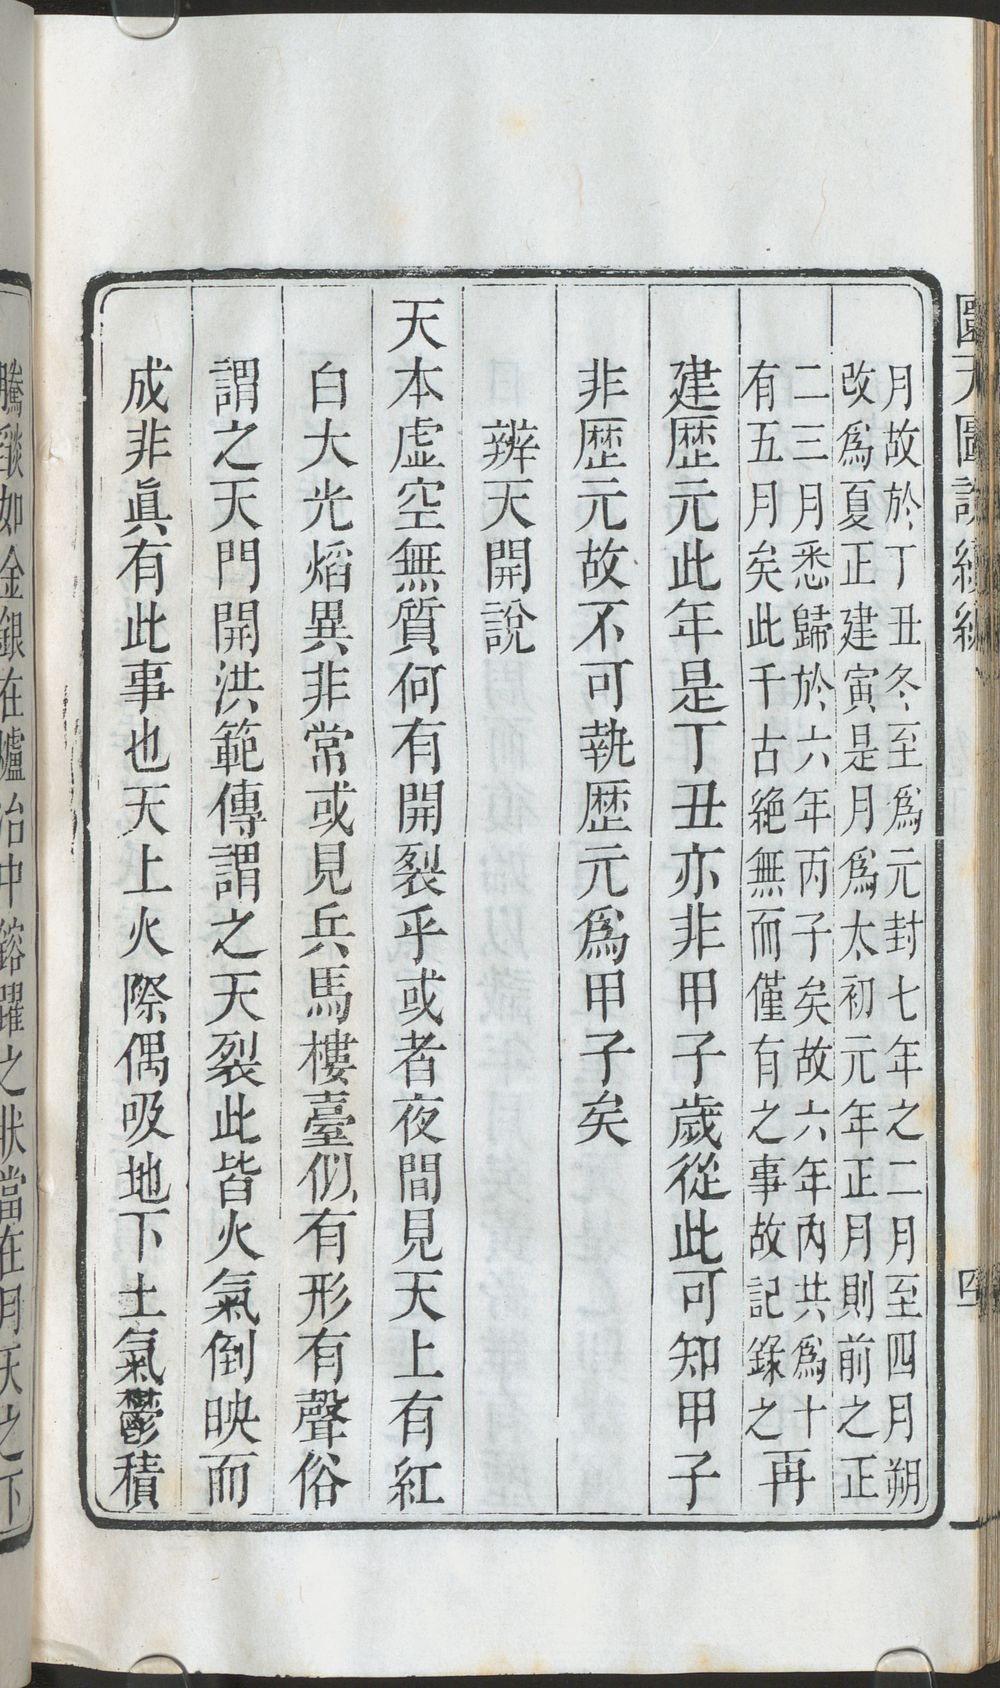 月故於丁丑冬至爲元封七年之二月至四月朔
改爲夏正建寅是月爲太初元年正月則前之正
二三月悉歸於六年丙子矣故六年內共爲十
有五月矣此千古絶無而僅有之事故記錄之再
建歴元此年是丁丑亦非甲子歲從此可知甲子
非歴元故不可執歴元爲甲子矣
辨天開說
天本虛空無質何有開裂乎或者夜間見天上有紅
白大光熖異非常或見兵馬樓臺似有形有聲俗
謂之天門開洪範傳謂之天裂此皆火氣倒映而
成非眞有此事也天上火際偶吸地下土氣鬱積
騰燄如金銀在爐冶中鎔躍之狀當在月天之下
圜天圖說續編
四